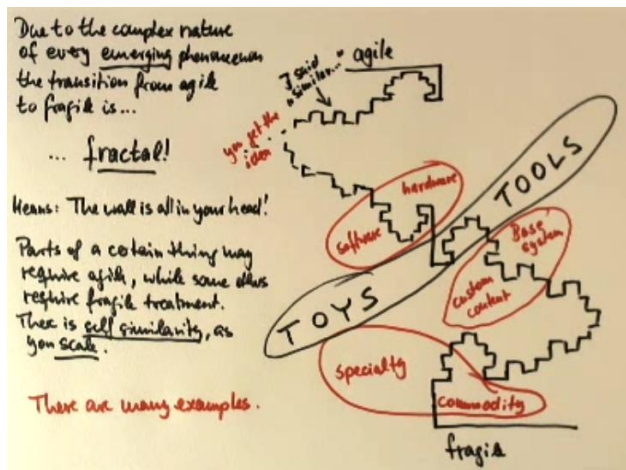 Due to the complex nature
of every emerging phenomenon
the transition from agile
to fragile is...
... fractal!
Means: The wall is all in your head!
Parts of a certain thing may
require agile, while some others
require fragile treatment.
There is self similarity, as
you scale.
There are many examples.
agile
I said
"similar...
you get the
idea
hardware
software
TOOLS
TOYS
Base system
custom content
specialty
commodity
fragile